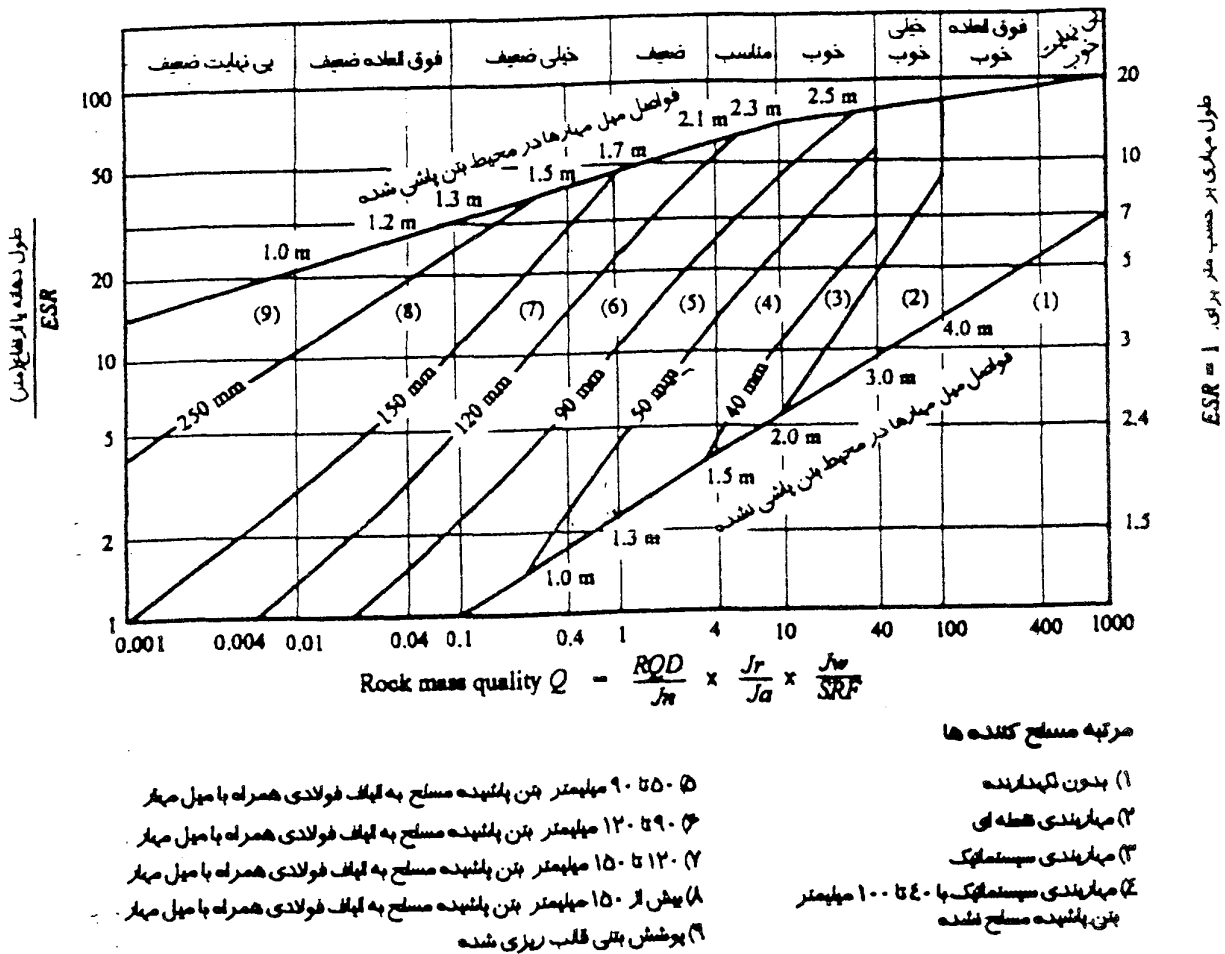 بی نهایت ضعیف
فوق العاده ضعیف
خیلی ضعیف
ضعیف
مناسب
خوب
خیلی خوب
فوق العاده خوب
بی نهایت خوب
فواصل میل مهارها در محیط بتن پاشی شده
1.0 m
1.2 m
1.3 m
1.5 m
1.7 m
2.1 m
2.3 m
2.5 m
100
50
20
10
5
2
1
20
10
7
5
3
2.4
1.5
طول دهانه یا ارتفاع(متر)
ESR
طول مهاری بر حسب متر برای ESR = 1
(9)
(8)
(7)
(6)
(5)
(4)
(3)
(2)
(1)
250 mm
150 mm
120 mm
90 mm
50 mm
40 mm
4.0 m
3.0 m
2.0 m
1.5 m
1.3 m
1.0 m
فواصل میل مهارها در محیط بتن پاشی نشده
0.001
0.004
0.01
0.04
0.1
0.4
1
4
10
40
100
400
1000
Rock mass quality Q = RQD/Jn x Jr/Ja x Jw/SRF
مرتبه مسلح کننده ها
۱) بدون نگهدارنده
۲) مهاربندی نقطه ای
۳) مهاربندی سیستماتیک
٤) مهاربندی سیستماتیک با ٤۰ تا ۱۰۰ میلیمتر
بتن پاشیده مسلح نشده
۵) ۵۰ تا ۹۰ میلیمتر بتن پاشیده مسلح به الیاف فولادی همراه با میل مهار
۶) ۹۰ تا ۱۲۰ میلیمتر بتن پاشیده مسلح به الیاف فولادی همراه با میل مهار
۷) ۱۲۰ تا ۱۵۰ میلیمتر بتن پاشیده مسلح به الیاف فولادی همراه با میل مهار
۸) بیش از ۱۵۰ میلیمتر بتن پاشیده مسلح به الیاف فولادی همراه با میل مهار
۹) پوشش بتنی قالب ریزی شده